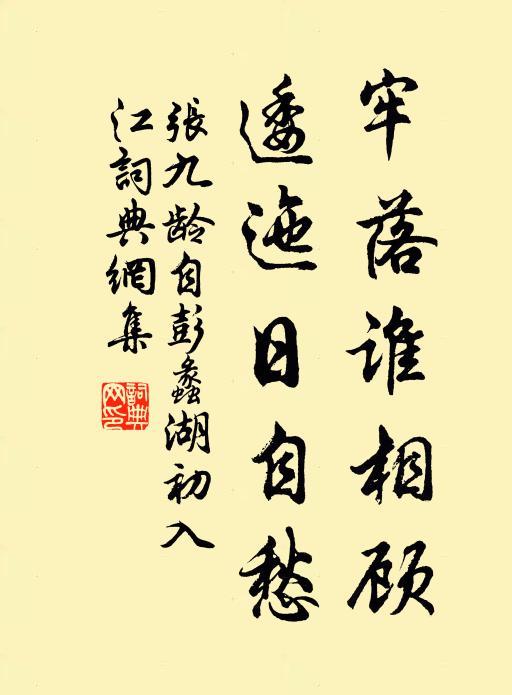 牢落谁相顾
逶迤日自愁
張九龄自彭蠡湖初入
江詞典網集
詞典
网印